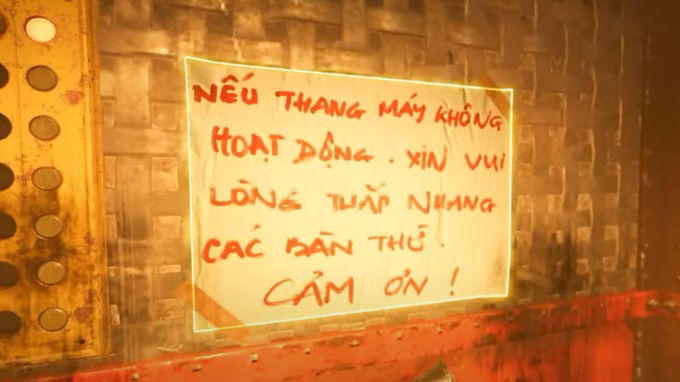 NẾU THANG MÁY KHÔNG
HOẠT ĐỘNG. XIN VUI
LÒNG THẮP NHANG
CÁC BÀN THỜ.
CẢM ƠN!